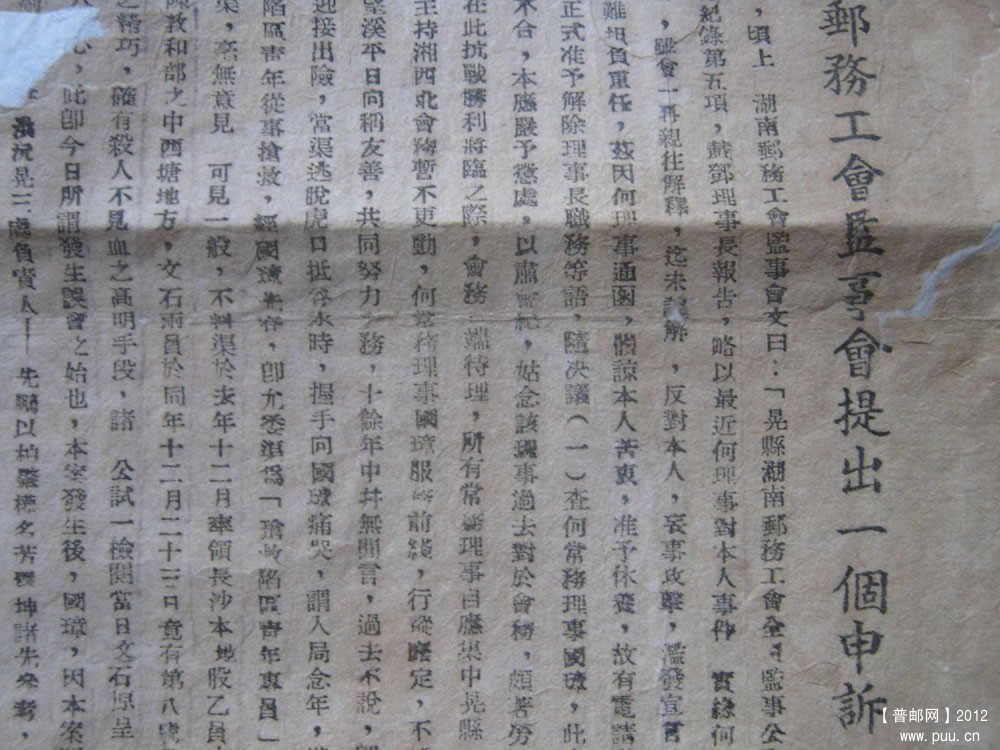 郵務工會監事會提出一個申訴
，頃上 湖南郵務工會監事會文曰：「晃縣湖南郵務工會全 監事公
紀錄第五項，戴鄧理事長報告，略以最近何理事對本人事件 實緣何
，雖會一再親往解釋，迄未 解，反對本人，哀事攻擊，濫發宣言
難担負重任，茲因何理事通函，體諒本人苦衷，准予休養，故有電請
正式准予解除理事長職務等語，隨決議（一）查何常務理事國璋，此
不合，本應嚴予懲處，以肅 紀，姑念該理事過去對於會務，頗著勞
在此抗戰勝利將臨之際，會務 端待理，所有常務理事自應集中晃縣
主持湘西北會務暫不更動，何常務理事國璋服務前綫，行蹤 定，不
望溪平日向稱友善，共同努力 務，十餘年中幷無閒言，過去不說，
迎接出險，當渠逃脫虎口抵 水時，握手向國璋痛哭，謂入局念年，
陷區青年從事搶救，經國璋 ，卽允委渠爲「搶救陷區青年專員」
渠，毫無意見 可見一般，不料渠於去年十二月率領長沙本地股乙員
陳敦和部之中西塘地方，文石兩員於同年十二月二十三日竟有第八
之精巧，確有殺人不見血之高明手段，諸 公試一檢閱當日文石原呈
心，此卽今日所謂發生誤會之始也，本案發生後，國璋，因本案
沅晃三處負責人——先鵬以柏 芳 坤諸先 考，
【普邮网】2012
www.puu.cn